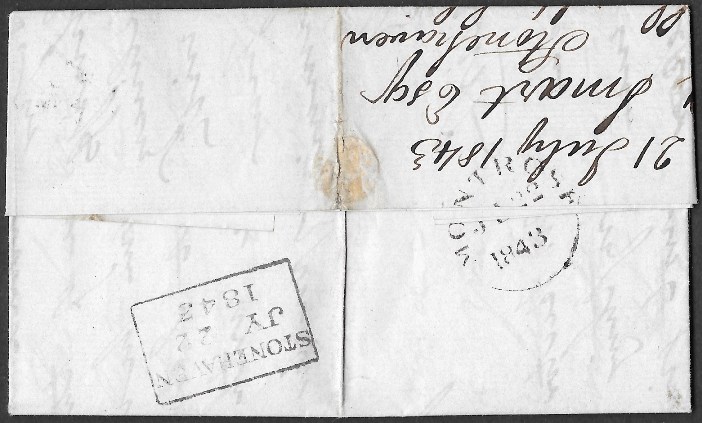 21 July 1843
Smart Esqr
Stonehaven
MONTROSE
JY 22
1843
STONEHAVEN
JY 22
1843